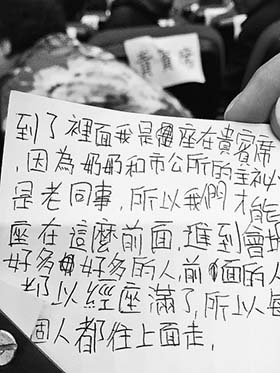 到了裡面我是座在貴賓席
,因為奶奶和市公所的主祕
是老同事,所以我們才能
座在這麼前面,進到會場
好多好多的人,前面的人
都以經座滿了,所以每
個人都往上面走,